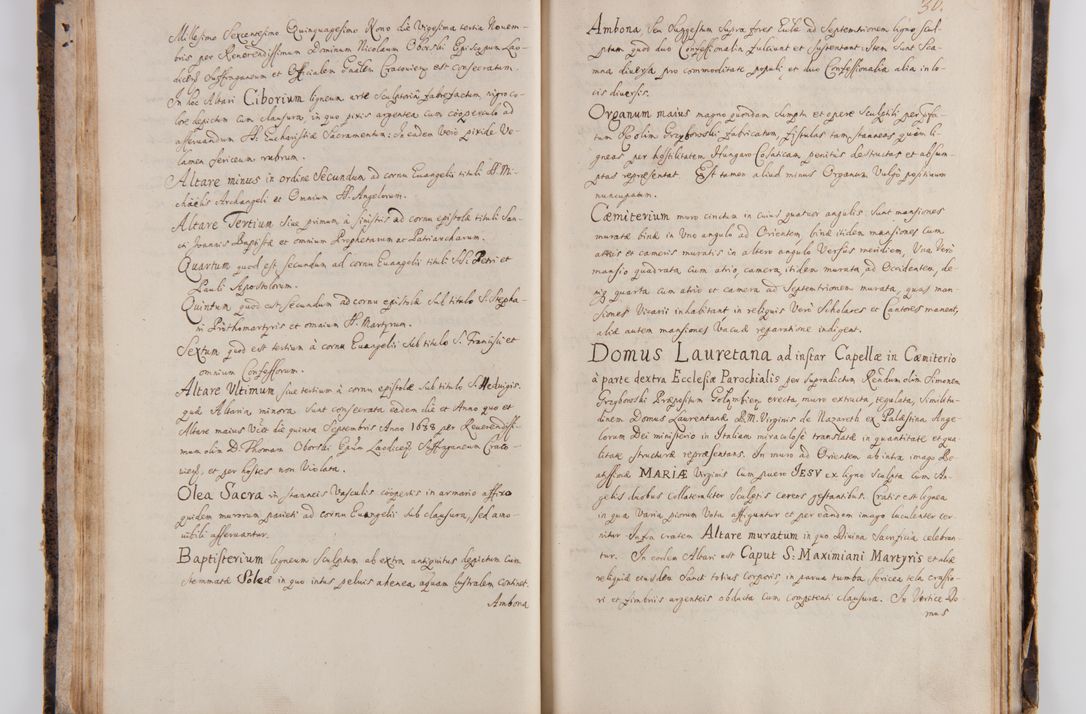 Millesimo Sexcentesimo Quinquagesimo Nono die Vigesima tertia Novem-
bris per Reverendissimum Dominum Nicolaum Oborski Episcopum Lao-
dicen Suffraganeum et Officialem Gnalem Cracoviens est consecratum.
In hoc Altari Ciborium ligneum arte Sculptoria fabrefactum nigro co-
lore depictum cum clausura, in quo pixis argentea cum coopeculo ad
asservandum SS. Eucharistiæ Sacramentum: In eadem Verò pixide Ve-
lamen sericeum rubrum.
Altare minus in ordine Secundum ad cornu Euangelii tituli S. Mi-
chaelis Archangeli et Omnium SS. Angelorum.
Altare Tertium Siue primum à sinistris ad cornu epistolæ tituli San-
cti Joannis Baptistæ et omnium Prophetarum et Patriarcharum.
Quartum quod est secundum ad cornu Euangelii tituli S.S. Petri et
Pauli Apostolorum.
Quintum quod est secundum ad cornu epistolæ Sub titulo S. Stepha-
ni Prothomartyris et omnium SS. Martyrum.
Sextum quod est tertium à cornu Euangelii Sub titulo S. Francisci et
omnium Confessorum.
Altare Vltimum siue tertium à cornu epistolæ Sub titulo S. Hedvigis.
quæ Altaria minora Sunt consecrata eadem die et Anno quo et
Altare maius Vict die quinta Septembris Anno 1638 per Reverendissi-
mum olim D. Thomam Oborski Epum Laodiceñ Suffraganeum Craco-
vieñ, et per hostes non Violata.
Olea Sacra in stanneis Vasculis coopertis in armario affixo
quidem murorum parieti ad cornu Euangelii sub clausura, sed amo-
vibili asservantur.
Baptisterium ligneum Sculptum ab extra antiquitus depictum cum
stemmate Soleæ in quo intus peluis ahenea aquam lustralem continet.
Ambona
30.
Ambona seu Suggestum Supra fores Euleæ ad Septentrionem ligno scul-
ptam quod duo Confessionalia fulciunt et sustentant Item Sunt Sca-
mna diuersa pro commoditate populi et duo Confessionalia alia in lo-
cis diuersis.
Organum maius magno quondam sumptu et opere Sculptili per
tum Grzybowski fabricatum, fistulas tam stanneas quàm li-
gneas per hostilitatem Hungaro Cosaticam penitùs destructas et absum-
ptas repræsentat Est tamen aliud minus Organum Vulgò positivum
nuncupatum.
Cæmiterium muro cinctum in cuius quatuor angulis Sunt mansiones
muratæ binæ in Vno angulo ad Orientem, binæ itidem mansiones cum
atriis et cameris muratis in altero angulo Versùs meridiem, Vna Verò
mansio quadrata cum atrio, camera, itidem murata, ad Occidentem, de-
niq quarta cum atrio et camera ad Septentrionem murata, quas man-
siones Vicarii inhabitant in reliquis Verò Scholares et Cantores manent,
aliæ autem mansiones Vacuæ reparatione indigent.
Domus Lauretana ad instar Capellæ in Cæmiterio
à parte dextra Ecclesiæ Parochialis per supradictum Rendum olim Simonem
Grzybowski Præpositum erecta, muro extructa, tegulata, similitu-
dinem Domus Laurentanæ B.M. Virginis de Nazareth ex Palæstina Ange-
lorum Dei ministerio in Italiam miraculosè translatæ in quantitate et qua-
litate structuræ repræsentans. In muro ad Orientem ab intra imago Be-
atissimæ MARIÆ Virginis cum puero IESV ex ligno Sculpta cum An-
gelis duobus Collateraliter Sculptis cereos gestantibus. Cratis est lignea
in qua Varia piorum Vota affiguntur et per eandem imago luculenter cer-
nitur Infra cratem Altare muratum in quo Divina Sacrificia celebran-
tur. In eodem Altari est Caput S: Maximiani Martyris et aliæ
reliquiæ eiusdem Sancti totius Corporis, in parua tumba, sericea tela crassio-
ri et fimbriis argenteis obducta cum competenti clausura. In Vertice Do-
mus